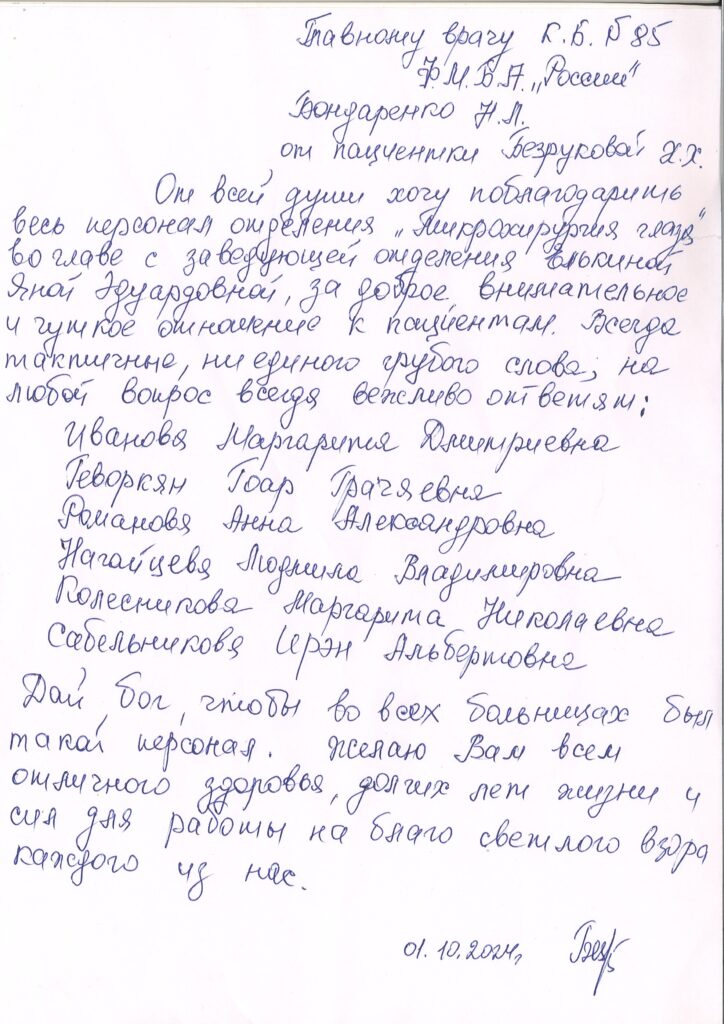 Главному врачу К.Б. №85
Ф.М.Б.А. „России"
Бондаренко Н.Л.
от пациентки Безруковой Х.Х.
От всей души хочу поблагодарить
весь персонал отделения „Микрохирургия глаза"
во главе с заведующей отделения Елькиной
Яной Эдуардовной, за доброе внимательное
и чуткое отношение к пациентам. Всегда
тактичные, ни единого грубого слова, на
любой вопрос всегда вежливо ответят:
Иванова Маргарита Дмитриевна
Геворкян Гоар Грачяевна
Романова Анна Александровна
Нагайцева Людмила Владимировна
Колесникова Маргарита Николаевна
Сабельникова Ирэн Альбертовна
Дай, бог, чтобы во всех больницах был
такой персонал. Желаю Вам всем
отличного здоровья, долгих лет жизни и
сил для работы на благо светлого взора
каждого из нас.
01.10.2024г